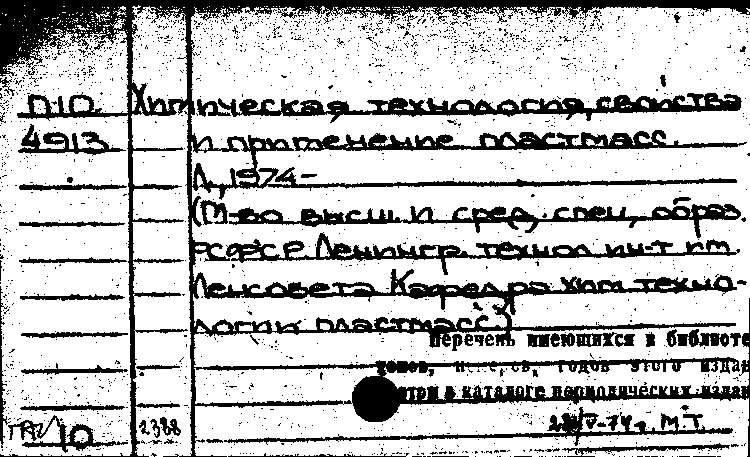 П10 Химическая технология, свойства
4913 и применение пластмасс.
Л., 1974-
(М-во высш. и сред. спец. образ.
РСФСР Ленингр. технол ин-т им.
Ленсовета Кафедра хим техно-
логии пластмасс.)
Перечень имеющихся в библиоте
томов, годов этого издан
в каталоге периодических издан
V-74г. М.Т.
10 2388